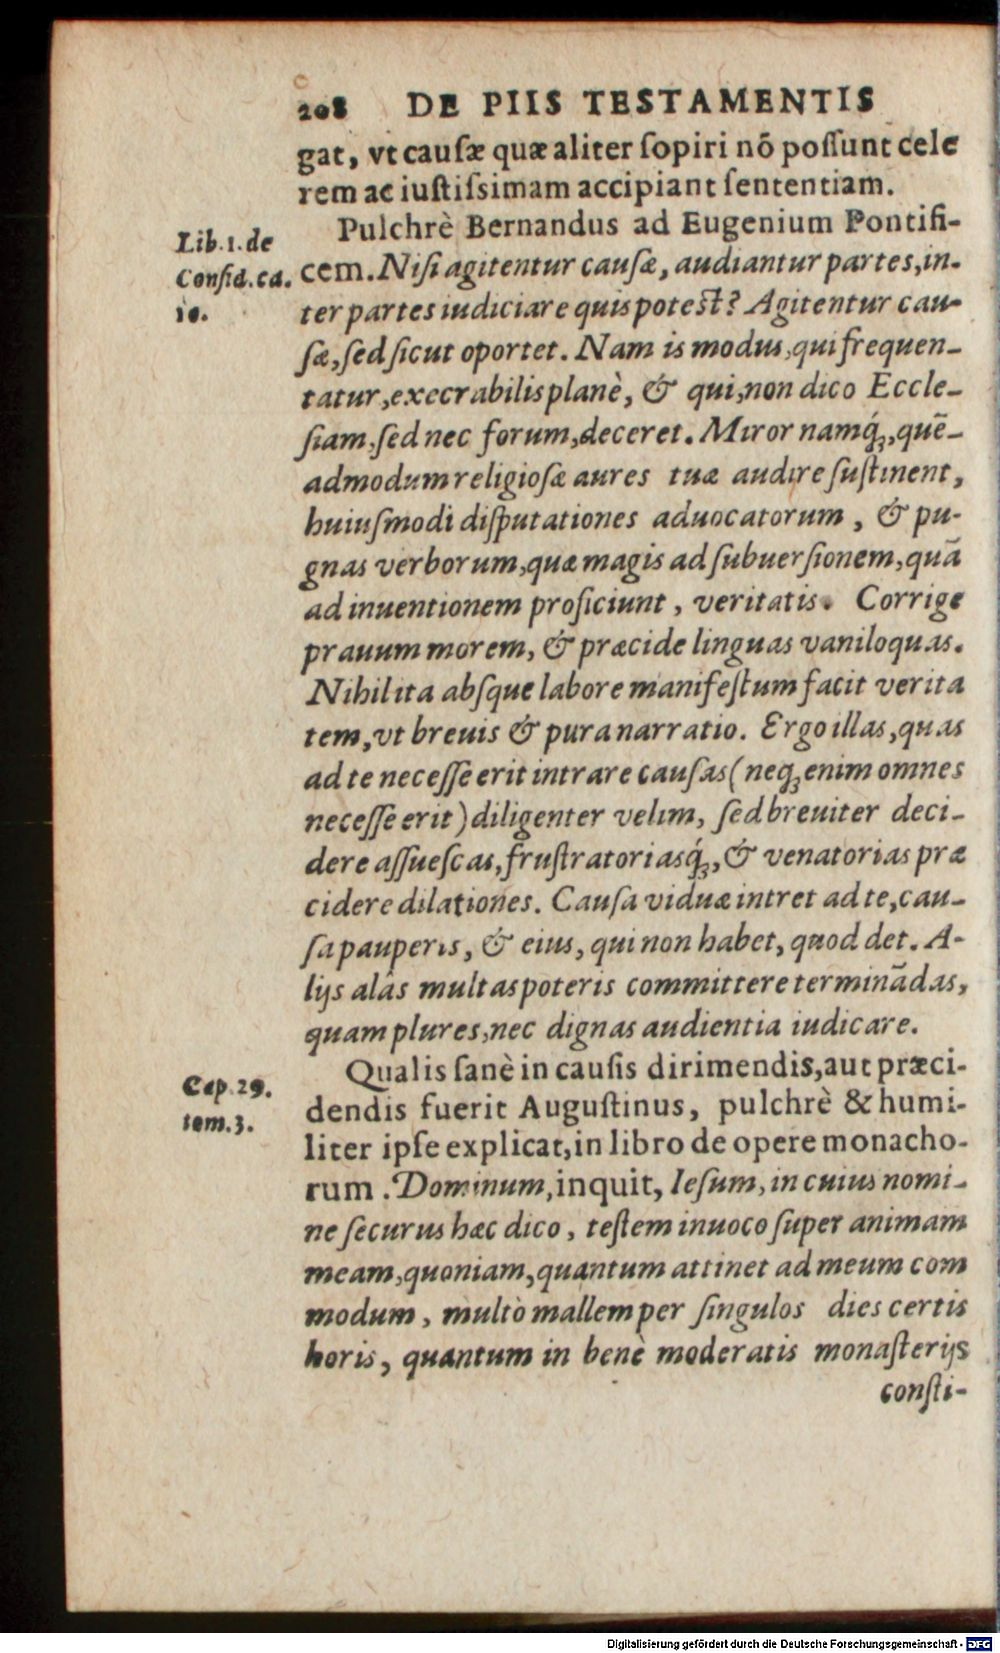 208 DE PIIS TESTAMENTIS
gat, vt cauſæ quæ aliter ſopiri nõ poſſunt cele
rem ac iuſtiſsimam accipiant ſententiam.
Pulchrè Bernandus ad Eugenium Pontifi-
Lib. 1. de
Conſid. ca.
10.
cem. Niſi agitentur cauſæ, audiantur partes, in-
ter partes iudiciare quis poteſt? Agitentur cau-
ſæ, ſed ſicut oportet. Nam is modus, qui frequen-
tatur, execrabilis planè, & qui, non dico Eccle-
ſiam, ſed nec forum, deceret. Miror namq́ꝫ, quē-
admodum religioſæ aures tuæ audire ſuſtinent,
huiuſmodi diſputationes aduocatorum, & pu-
gnas verborum, quæ magis ad ſubuerſionem, quā
ad inuentionem proficiunt, veritatis. Corrige
prauum morem, & præcide linguas vaniloquas.
Nihil ita abſque labore manifeſtum facit verita
tem, vt breuis & pura narratio. Ergo illas, quas
ad te neceſſe erit intrare cauſas (neqꝫ enim omnes
neceſſe erit) diligenter velim, ſed breuiter deci-
dere aſſueſcas, fruſtratoriasq́ꝫ, & venatorias præ
cidere dilationes. Cauſa viduæ intret ad te, cau-
ſa pauperis, & eius, qui non habet, quod det. A-
lijs aliâs multas poteris committere terminādas,
quam plures, nec dignas audientia iudicare.
Qualis ſanè in cauſis dirimendis, aut præci-
Cap. 29.
tom. 3.
dendis fuerit Auguſtinus, pulchrè & humi-
liter ipſe explicat, in libro de opere monacho-
rum. Dominum, inquit, Ieſum, in cuius nomi-
ne ſecurus hæc dico, teſtem inuoco ſuper animam
meam, quoniam, quantum attinet ad meum com
modum, multò mallem per ſingulos dies certis
horis, quantum in benè moderatis monaſterijs
conſti-
Digitalisierung gefördert durch die Deutsche Forschungsgemeinschaft - DFG